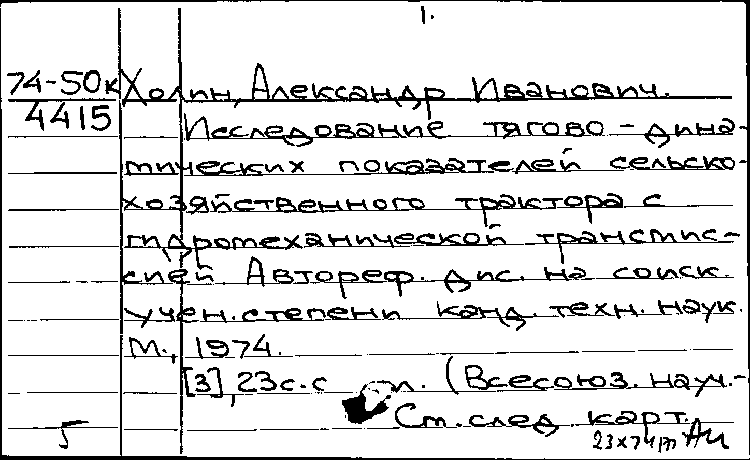 1.
74-50к Холин, Александр Иванович.
4415 Исследование тягово-дина-
мических показателей сельско-
хозяйственного трактора с
гидромеханической трансмис-
сией. Автореф. дис. на соиск.
учен. степени канд. техн. наук.
М., 1974.
[3], 23с. с ил. (Всесоюз. науч.-
См. след карт.
5